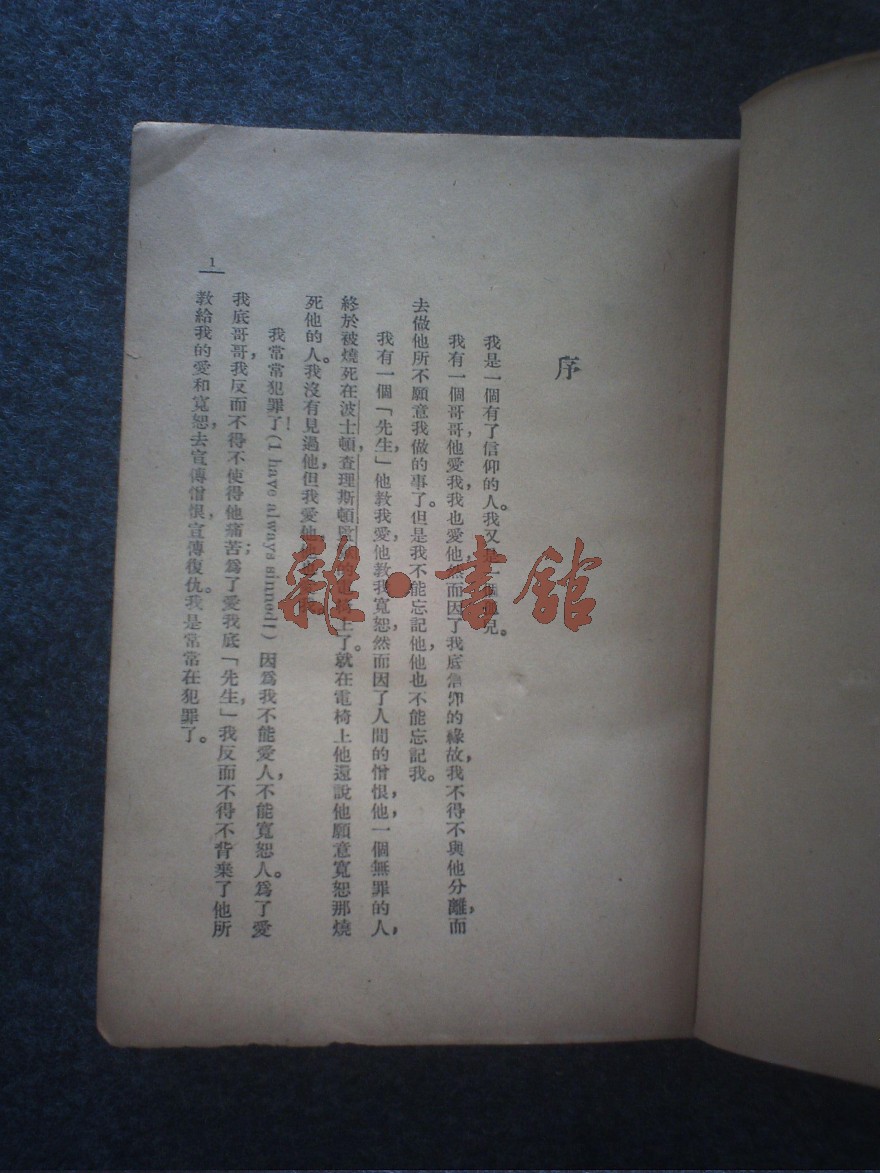 序
我是一個有了信仰的人。我又是一個孤兒。
我有一個哥哥，他愛我，我也愛他，然而因了我底信仰的緣故，我不得不與他分離，而
去做他所不願意我做的事了。但是我不能忘記他，他也不能忘記我。
我有一個「先生」，他教我愛，他教我寬恕，然而因了人間的憎恨，他，一個無罪的人，
終於被燒死在波士頓，查理斯頓監獄的電椅上了。就在電椅上他還說他願意寬恕那燒
死他的人。我沒有見過他，但我愛他，他
我常常犯罪了！(I have always sinned!) 因爲我不能愛人，不能寬恕人。爲了愛
我底哥哥，我反而不得不使得他痛苦；爲了愛我底「先生」，我反而不得不背棄了他所
教給我的愛和寬恕，去宣傳憎恨，宣傳復仇。我是常常在犯罪了。
1
雜·書館